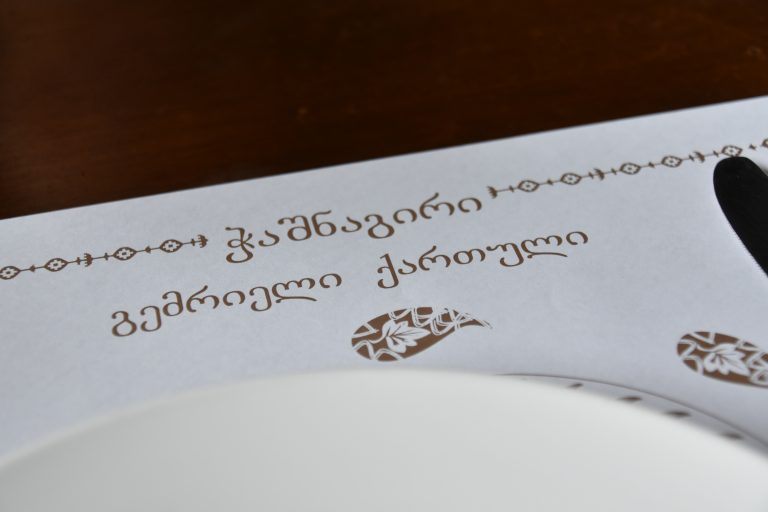 ჭაშნაგირი
გემრიელი ქართული